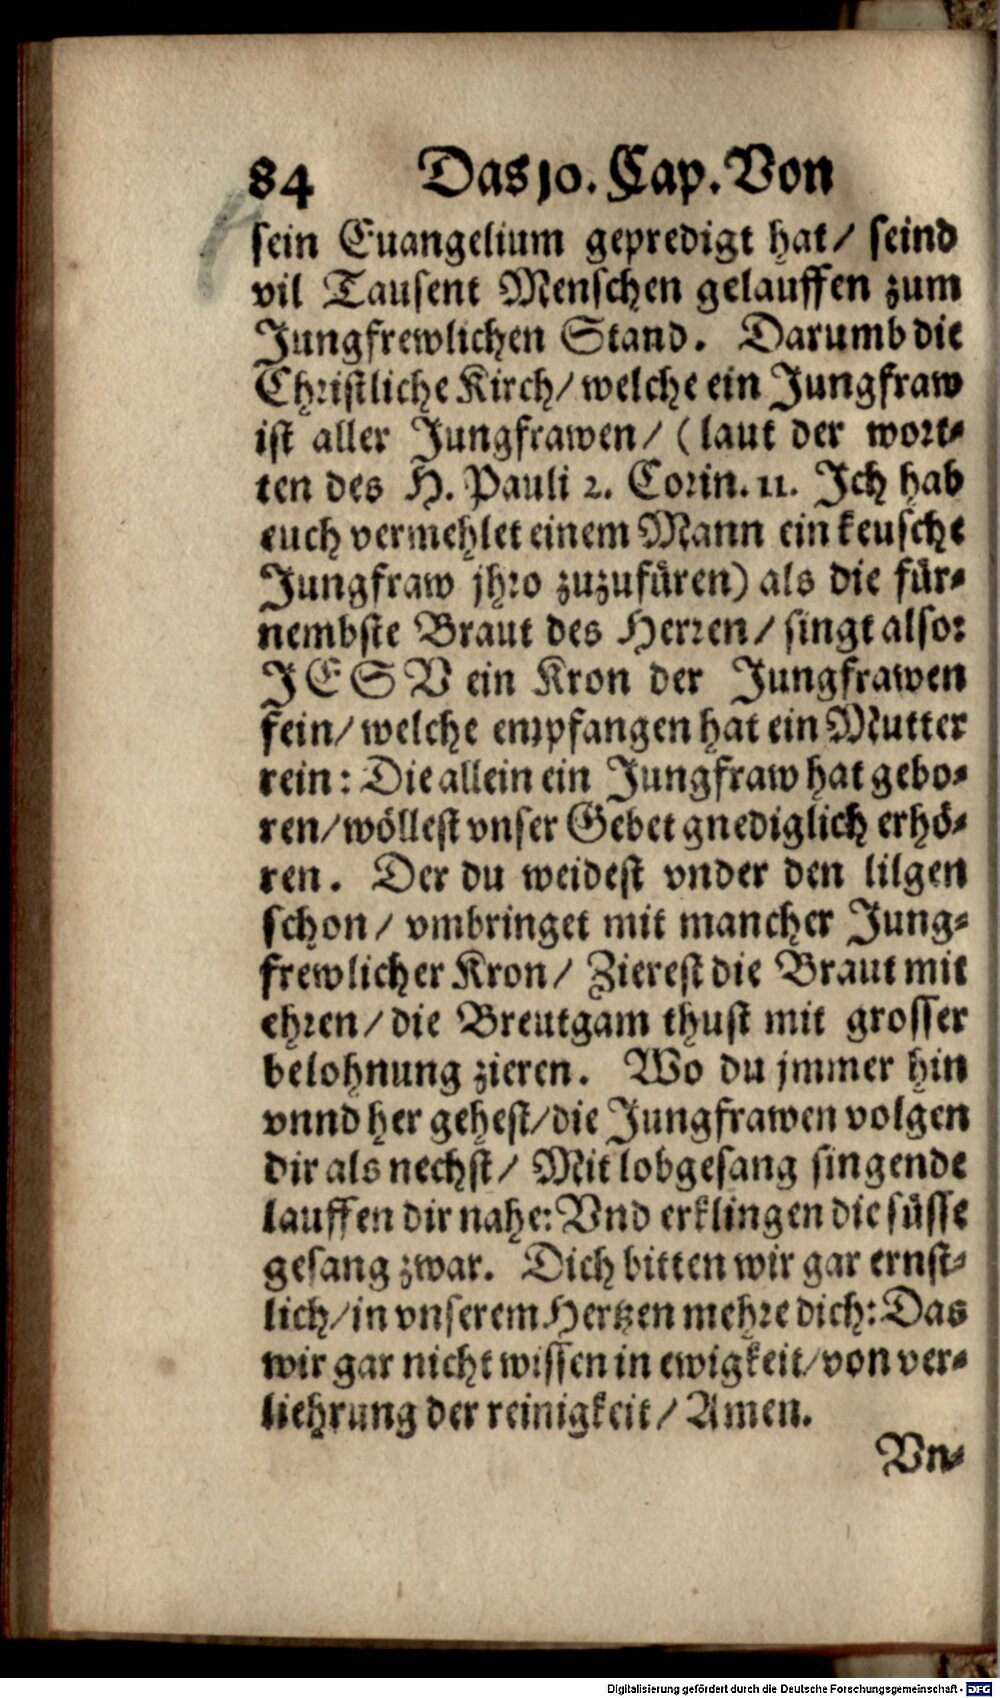 84 Das 10. Cap. Von
sein Euangelium gepredigt hat/ seind
vil Tausent Menschen gelauffen zum
Jungfrewlichen Stand. Darumb die
Christliche Kirch/ welche ein Jungfraw
ist aller Jungfrawen/ (laut der wort-
ten des H. Pauli 2. Corin. 11. Ich hab
euch vermehlet einem Mann ein keusche
Jungfraw jhro zuzufüren) als die für-
nembste Braut des Herren/ singt also:
JESV ein Kron der Jungfrawen
fein/ welche empfangen hat ein Mutter
rein: Die allein ein Jungfraw hat gebo-
ren/ wöllest vnser Gebet gnediglich erhö-
ren. Der du weidest vnder den lilgen
schon/ vmbringet mit mancher Jung-
frewlicher Kron/ Zierest die Braut mit
ehren/ die Breutgam thust mit grosser
belohnung zieren. Wo du jmmer hin
vnnd her gehest/ die Jungfrawen volgen
dir als nechst/ Mit lobgesang singende
lauffen dir nahe: Vnd erklingen die süsse
gesang zwar. Dich bitten wir gar ernst-
lich/ in vnserem Hertzen mehre dich: Das
wir gar nicht wissen in ewigkeit/ von ver-
liehrung der reinigkeit/ Amen.
Vn-
Digitalisierung gefördert durch die Deutsche Forschungsgemeinschaft - DFG